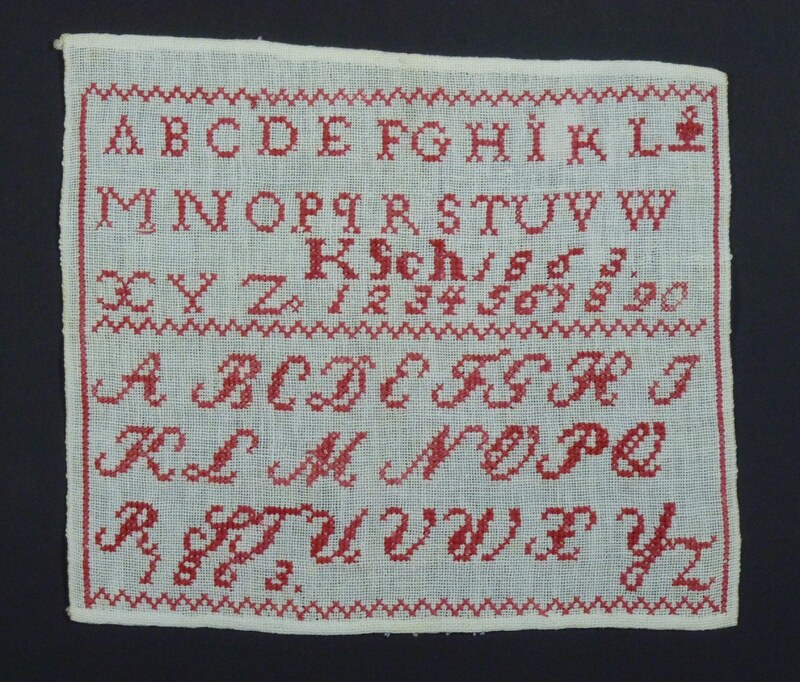 A B C D E F G H I K L
M N O P q R S T U V W
K Sch 1863.
X Y Z. 1 2 3 4 5 6 7 8 9 0
A B C D E F G H I
K L M N O P Q
R S T U V W X Y Z
1863.